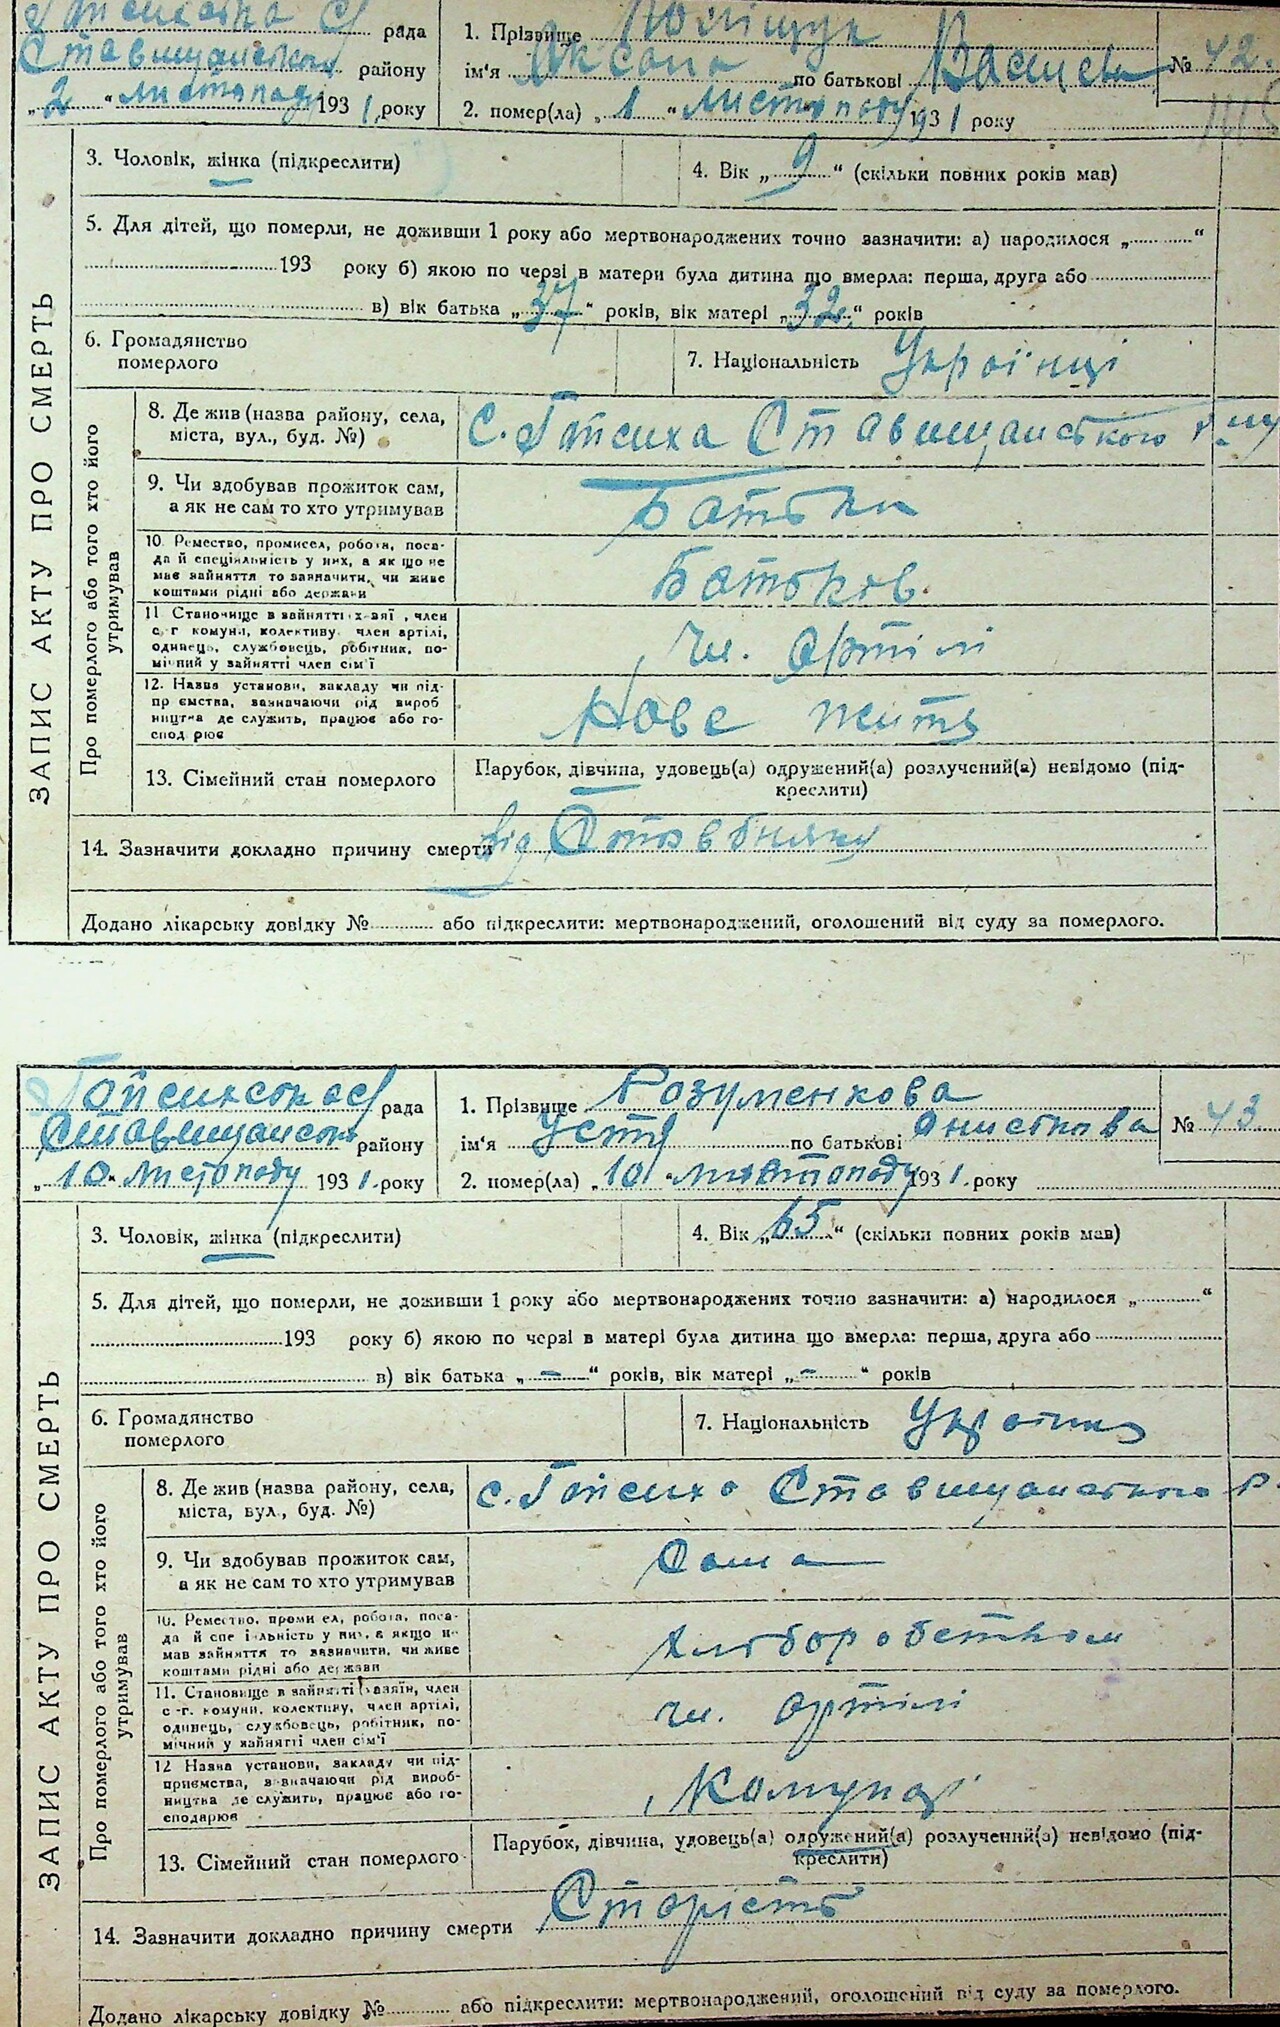 рада
Ставищанського району
„2“ листопаду 1931 року
1. Прізвище Поліщук
ім‘я Оксана по батькові Васильева № 42.
2. помер(ла) „1“ листопаду 1931 року
3. Чоловік, жінка (підкреслити)
4. Вік „9“ (скільки повних років мав)
5. Для дітей, що померли, не доживши 1 року або мертвонароджених точно зазначити: а) народилося „..........“
..........193 року б) якою по черзі в матери була дитина що вмерла: перша, друга або..........
.......... в) вік батька „37“ років, вік матері „32“ років
6. Громадянство
померлого
7. Національність Українці
ЗАПИС АКТУ ПРО СМЕРТЬ
Про померлого або того хто його
утримував
8. Де жив (назва району, села,
міста, вул., буд. №)
с. Гайсиха Ставищанського
9. Чи здобував прожиток сам,
а як не сам то хто утримував
Батьки
10. Ремество, промисел, робота, поса-
да й спеціяльність у них, а як що не
має зайняття то зазначити, чи живе
коштами рідні або держави
Батьків
11 Становище в зайнятті хазяї , член
с г комуни, колективу член артілі,
одинець, службовець, робітник, по-
мічний у зайнятті член сім‘ї
чл. Артілі
12. Назва установи, закладу чи під-
пр ємства, зазначаючи рід вироб
ництва де служить, працює або го-
спод рює
Нове життя
13. Сімейний стан померлого
Парубок, дівчина, удовець(а) одружений(а) розлучений(а) невідомо (під-
креслити)
14. Зазначити докладно причину смерти від
Додано лікарську довідку №.......... або підкреслити: мертвонароджений, оголошений від суду за померлого.
Гайсихська с/ рада
Ставищансько району
„10“ листопаду 1931. року
1. Прізвище Розуменкова
ім‘я Устя по батькові Онисткова № 43
2. помер(ла) „10“ листопаду 1931. року
3. Чоловік, жінка (підкреслити)
4. Вік „65“ (скільки повних років мав)
5. Для дітей, що померли, не доживши 1 року або мертвонароджених точно зазначити: а) народилося „..........“
..........193 року б) якою по черзі в матері була дитина що вмерла: перша, друга або..........
.......... в) вік батька „–“ років, вік матері „–“ років
6. Громадянство
померлого
7. Національність Українка
ЗАПИС АКТУ ПРО СМЕРТЬ
Про померлого або того хто його
утримував
8. Де жив (назва району, села,
міста, вул., буд. №)
с. Гайсиха Ставищанського р.
9. Чи здобував прожиток сам,
а як не сам то хто утримував
Сама
10. Ремество, проми ел, робота, поса-
да й спе і льність у них, а якщо н
мав зайняття то зазначити, чи живе
коштами рідні або держави
Хліборобством
11. Становище в зайнятті (хазяїн, член
с -г. комуни, колективу, член артілі,
одинець, службовець, робітник, по-
мічний у зайнятті член сім‘ї
чл. артілі
12 Назва установи, закладу чи під-
приємства, зазначаючи рід вироб-
ництва де служить, працює або го-
сподарює
13. Сімейний стан померлого
Парубок, дівчина, удовець(а) одружений(а) розлучений(а) невідомо (під-
креслити)
14. Зазначити докладно причину смерти Старість
Додано лікарську довідку №.......... або підкреслити: мертвонароджений, оголошений від суду за померлого.